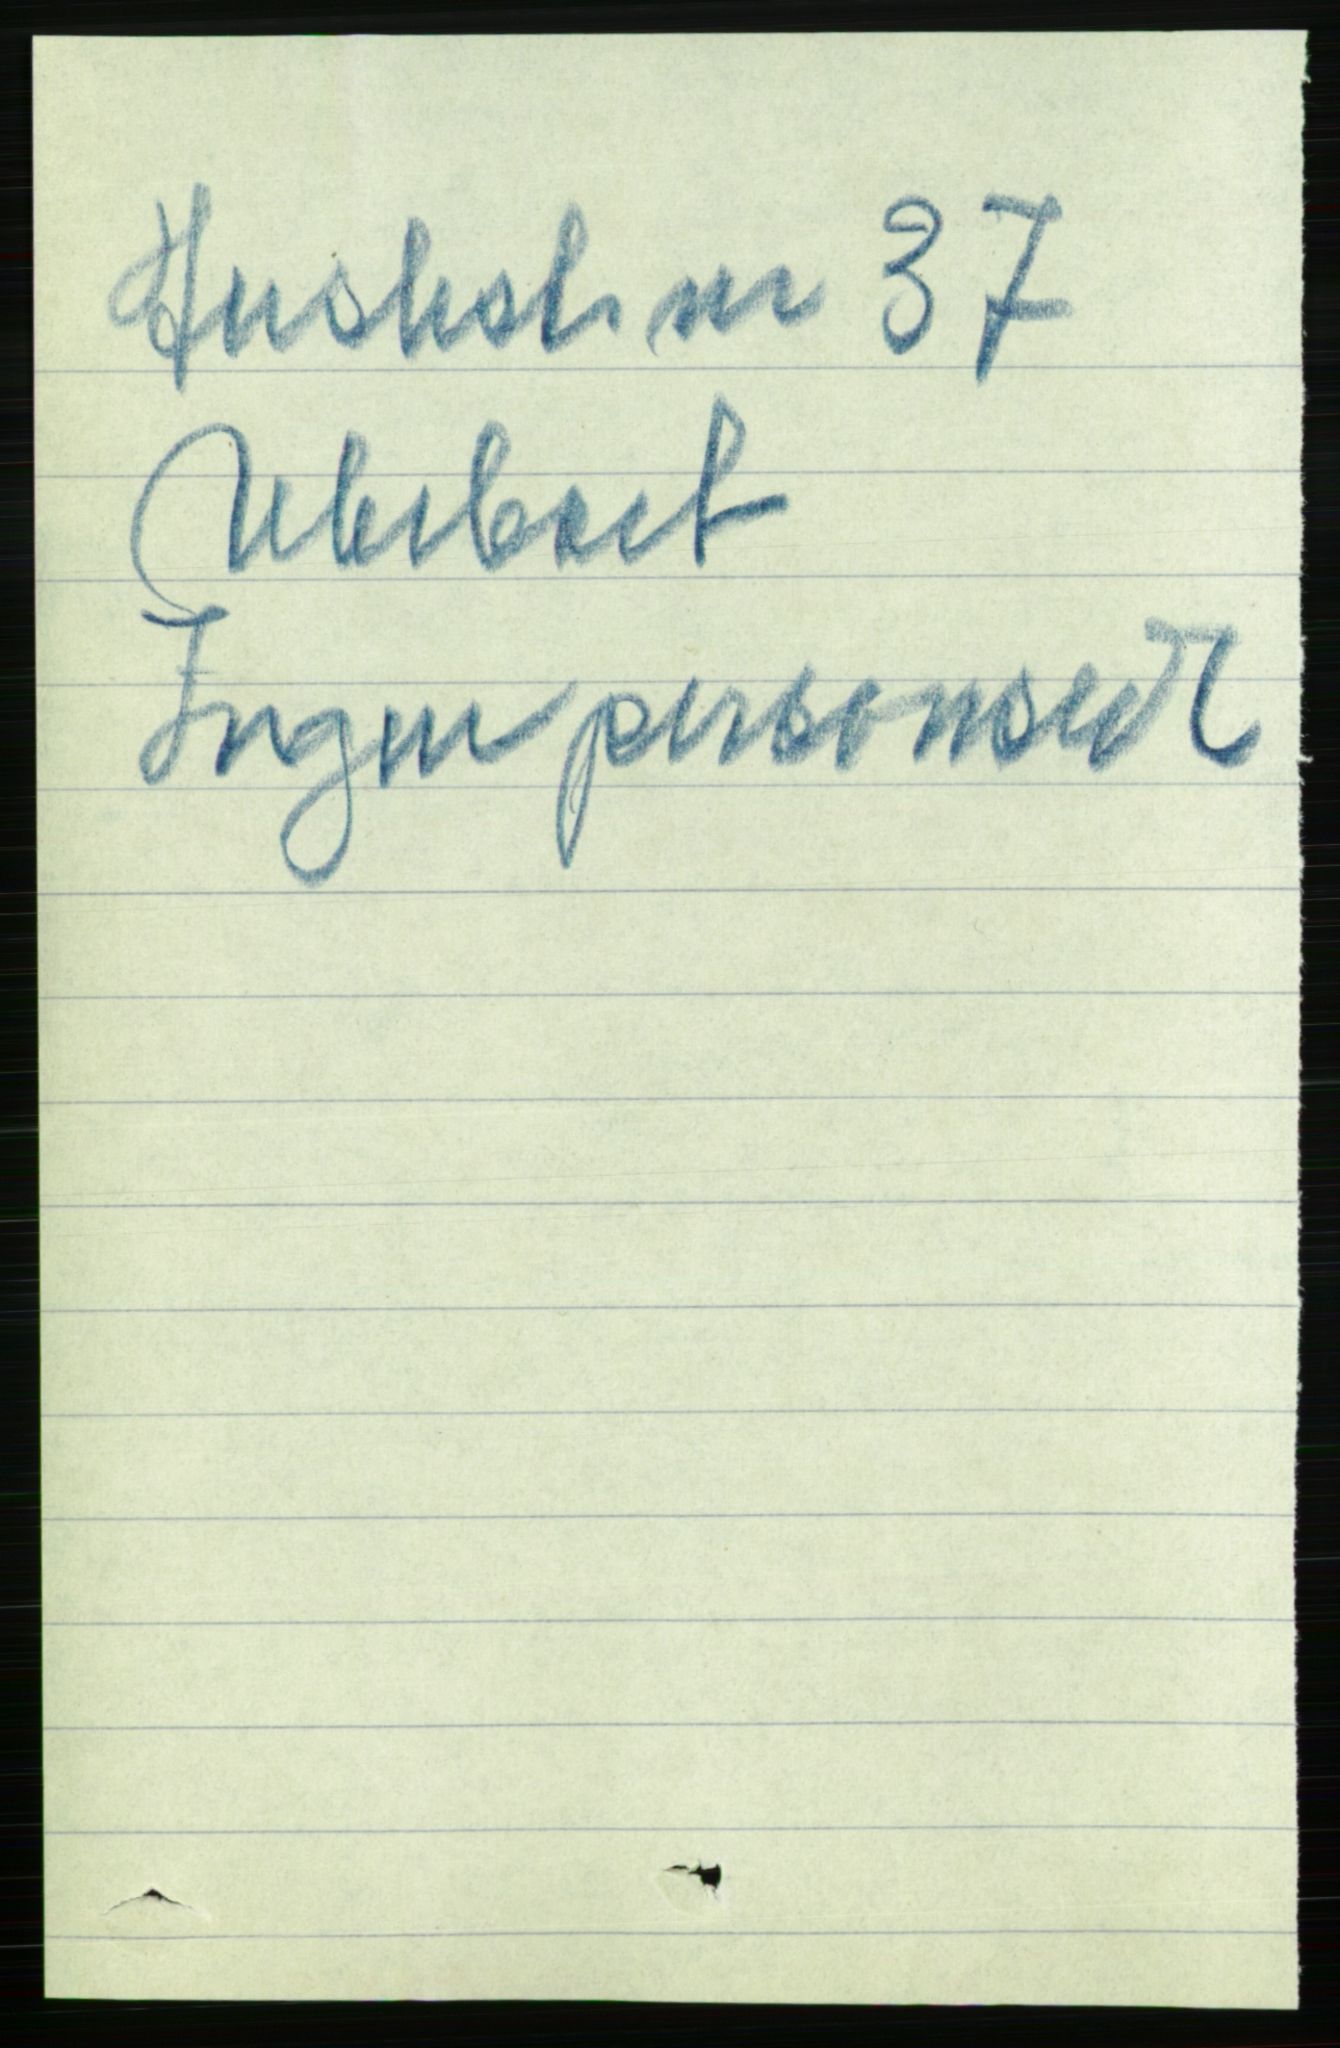 Husholn nr 37
Ubebodt
Ingen personsedl